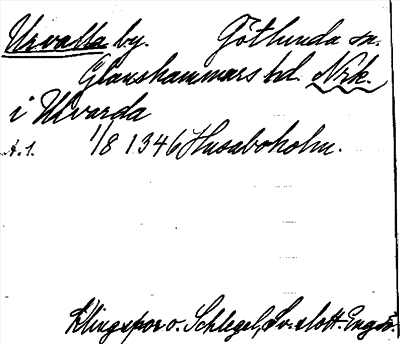 Urvalla by. Götlunda sn.
Glanshammars hd. Nrk.
i Urvarda
A. 1. 1/8 1346 Husaboholm.
Klingspor o. Schlegel, Sv. slott. Engsö.